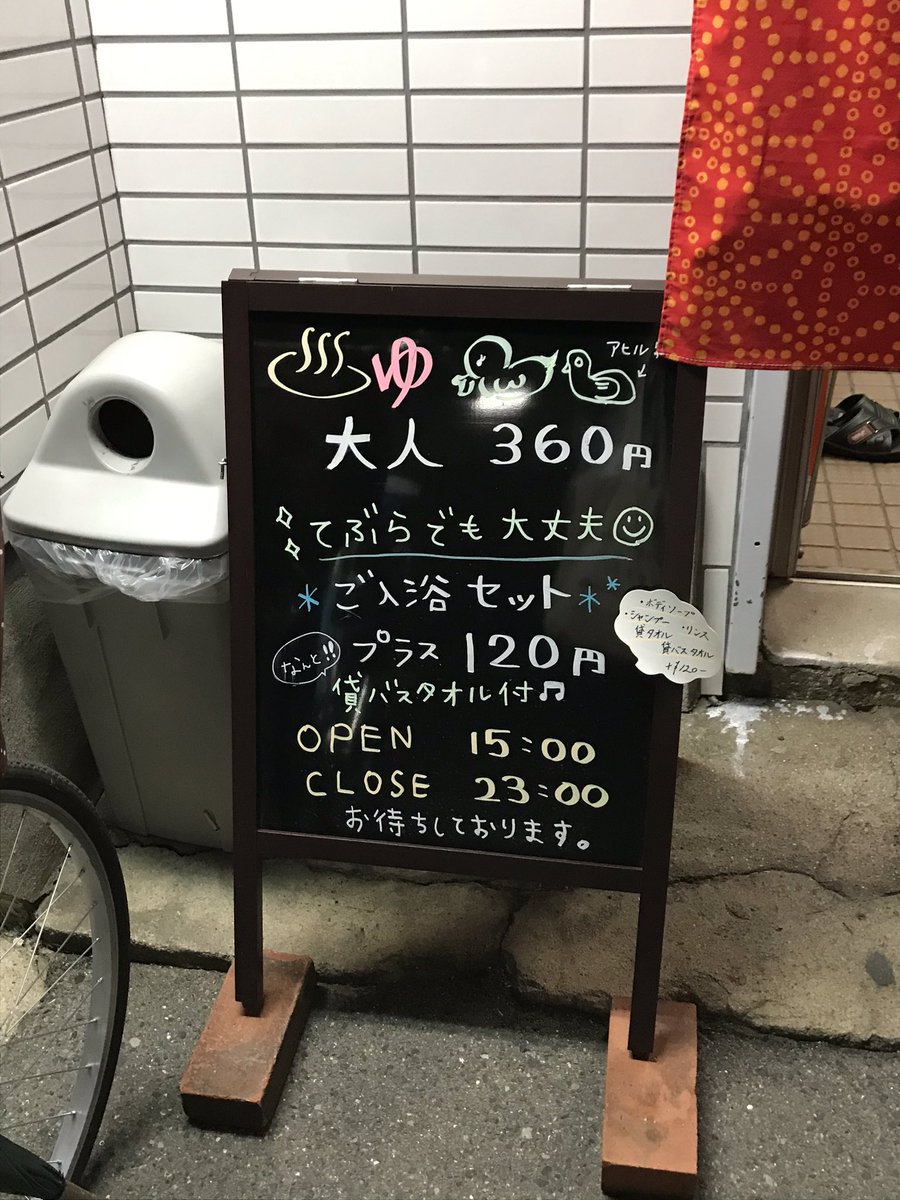 ♨ゆ
アヒル
大人 360円
てぶらでも大丈夫
*ご入浴セット*
なんと!!
プラス120円
貸バスタオル付♫
・ボディソープ
・シャンプー ・リンス
貸タオル
貸バスタオル
+¥120-
OPEN 15:00
CLOSE 23:00
お待ちしております。